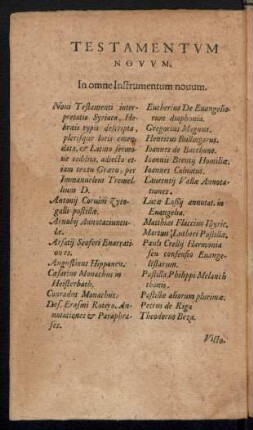 TESTAMENTVM
NOVVM.
In omne Instrumentum nouum.
Noui Testamenti inter-
pretatio Syriaca, He-
braicis typis descripta,
plerisque locis emen-
data, & Latino sermo-
ne reddita, adiecto et-
iam textu Græco, per
Immanuelem Tremel-
lium D.
Antonij Coruini & Zyto-
galli postillæ.
Arnobij Annotatiuncu-
læ.
Arsatij Seoferi Enarrati-
ones.
Augustinus Hipponen.
Cæsarius Monachus in
Heisterbach.
Conradus Monachus.
Des. Erasmi Rotero. An-
notationes & Paraphra-
ses.
Eucherius De Euangelio-
rum diaphonia.
Gregorius Magnus.
Henricus Bullingerus.
Ioannes de
Ioannis Brentij Homiliæ.
Ioannes Caluinus.
Laurentij Vallæ Annota-
tiones.
Lucæ Lossij annotat. in
Euangelia.
Matthias Flaccius Illyric.
Martini Lutheri Postilla.
Pauli Crellij Harmonia
seu consensio Euange-
listarum.
Postilla Philippi Melanch
thonis.
Postillæ aliorum plurimæ.
Petrus de Riga
Theodorus Beza.
Victo.